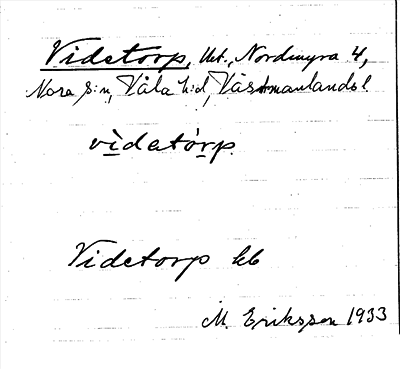 Videtorp, Urt., Nordmyra 4,
Nora s:n, Våla h:d, Västmanlands l
vìdatórp.
Videtorp kb
M. Eriksson 1933